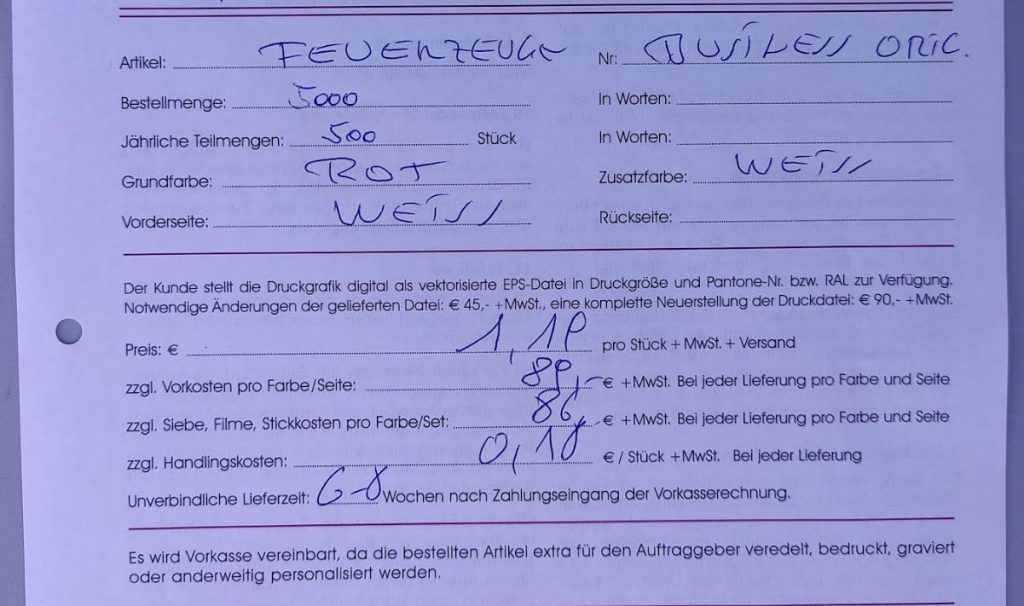 Artikel: FEUERZEUGE Nr: BUSINESS ORIG.
Bestellmenge: 5000 In Worten:
Jährliche Teilmengen: 500 Stück In Worten:
Grundfarbe: ROT Zusatzfarbe: WEISS
Vorderseite: WEISS Rückseite:
Der Kunde stellt die Druckgrafik digital als vektorisierte EPS-Datei in Druckgröße und Pantone-Nr. bzw. RAL zur Verfügung.
Notwendige Änderungen der gelieferten Datei: € 45,- +MwSt., eine komplette Neuerstellung der Druckdatei: € 90,- +MwSt.
Preis: € pro Stück + MwSt. + Versand
zzgl. Vorkosten pro Farbe/Seite: 89,- € +MwSt. Bei jeder Lieferung pro Farbe und Seite
zzgl. Siebe, Filme, Stickkosten pro Farbe/Set: 86,- € +MwSt. Bei jeder Lieferung pro Farbe und Seite
zzgl. Handlingskosten: 0,18 € / Stück +MwSt. Bei jeder Lieferung
Unverbindliche Lieferzeit: 6-8 Wochen nach Zahlungseingang der Vorkasserechnung.
Es wird Vorkasse vereinbart, da die bestellten Artikel extra für den Auftraggeber veredelt, bedruckt, graviert
oder anderweitig personalisiert werden.